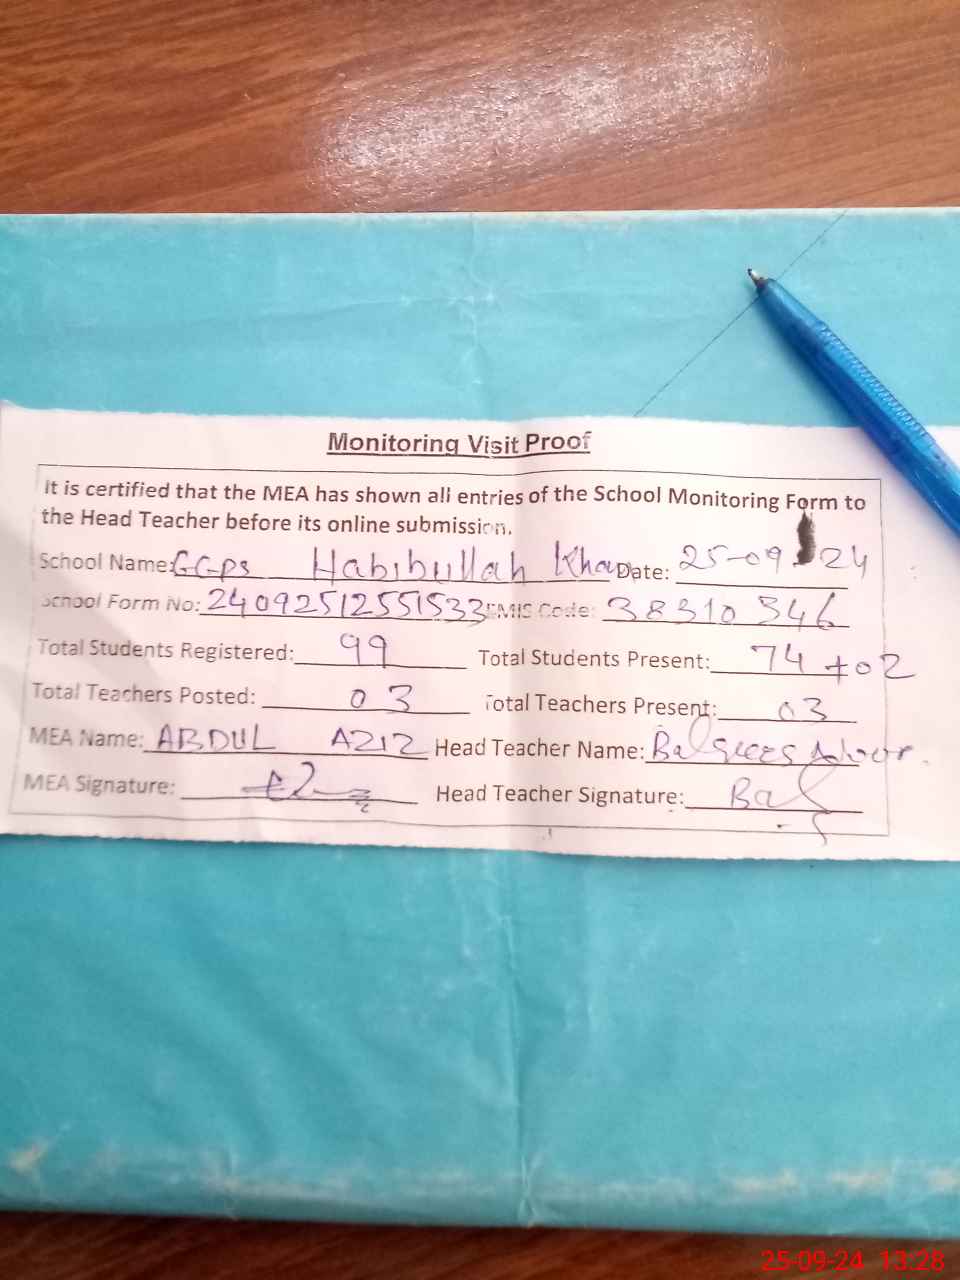 Monitoring Visit Proof
It is certified that the MEA has shown all entries of the School Monitoring Form to
the Head Teacher before its online submission.
School Name: GGPS Habibullah Khan Date: 25-09 24
School Form No: 24092512551533 EMIS Code: 38310346
Total Students Registered: 99 Total Students Present: 74+02
Total Teachers Posted: 03 Total Teachers Present: 03
MEA Name: ABDUL AZIZ Head Teacher Name: Balqees
MEA Signature: Head Teacher Signature: Bal
25-09-24 13:28